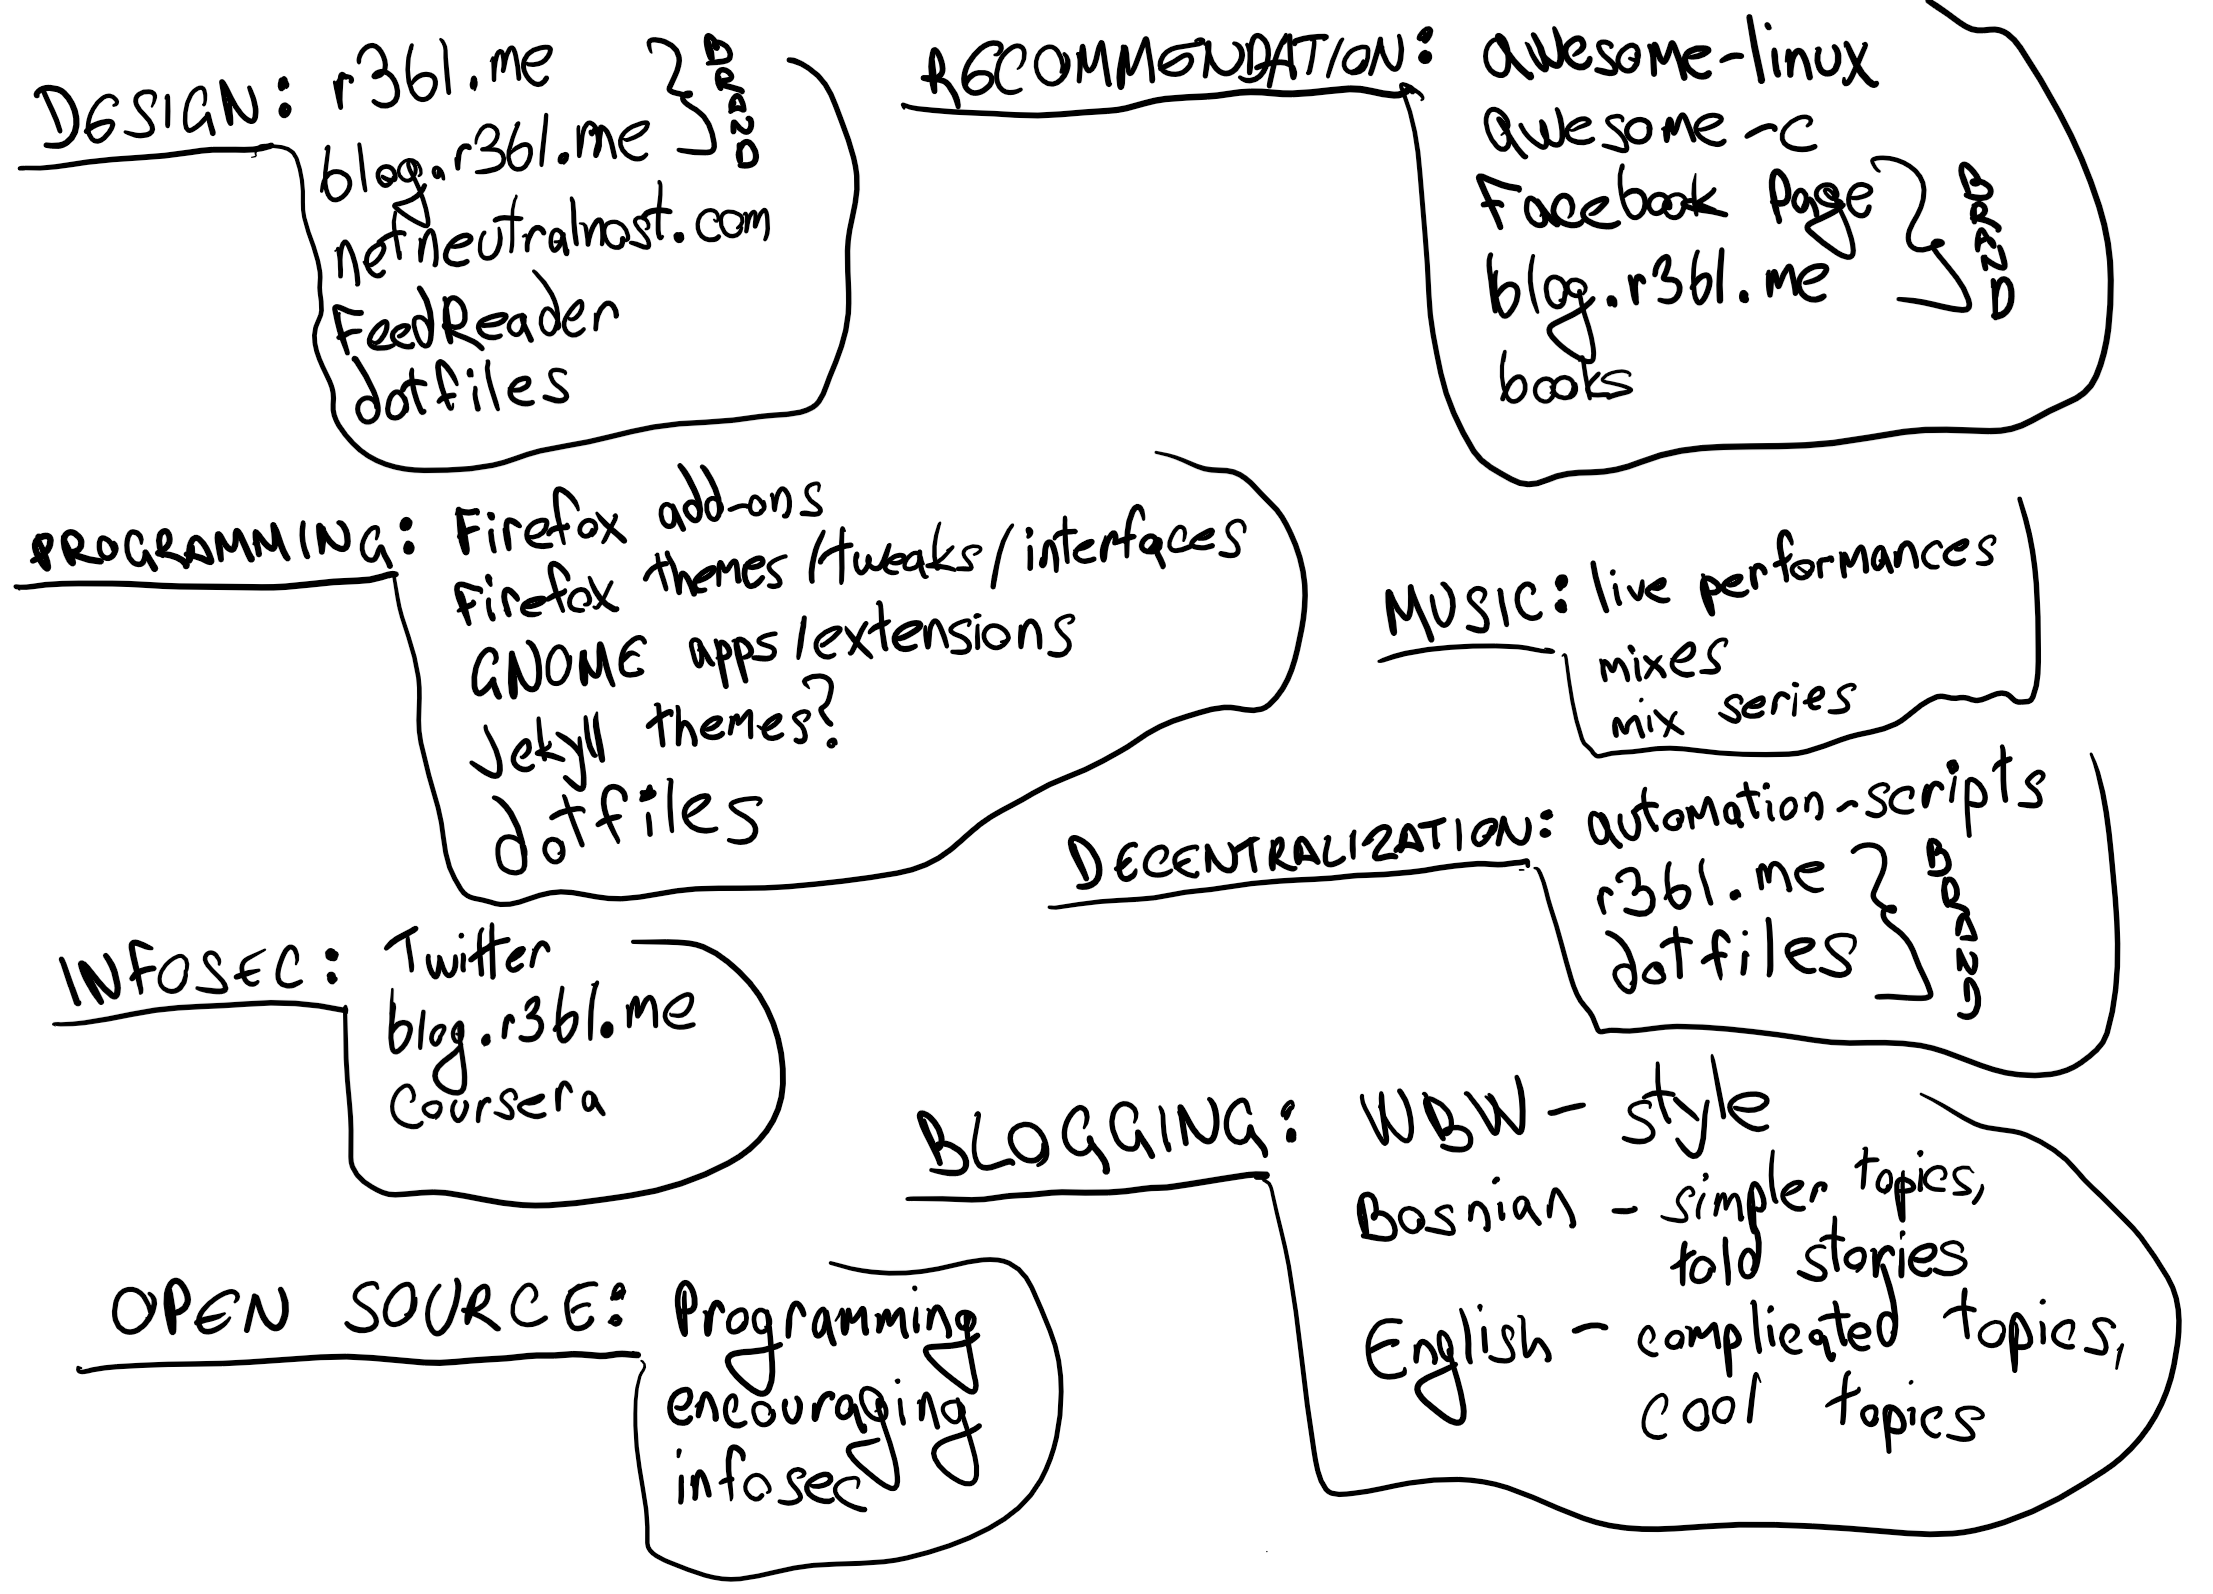 DESIGN: r3bl.me
blog.r3bl.me
BRAND
netneutralnost.com
FeedReader
dotfiles
RECOMMENDATION: awesome-linux
awesome-c
Facebook Page
blog.r3bl.me
BRAND
books
PROGRAMMING: Firefox add-ons
Firefox themes/tweaks/interfaces
GNOME apps/extensions
Jekyll themes?
dotfiles
MUSIC: live performances
mixes
mix series
DECENTRALIZATION: automation-scripts
r3bl.me
dotfiles
BRAND
INFOSEC: Twitter
blog.r3bl.me
Coursera
BLOGGING: WBW-style
Bosnian - simpler topics,
told stories
English - complicated topics,
cool topics
OPEN SOURCE: Programming
encouraging
infosec